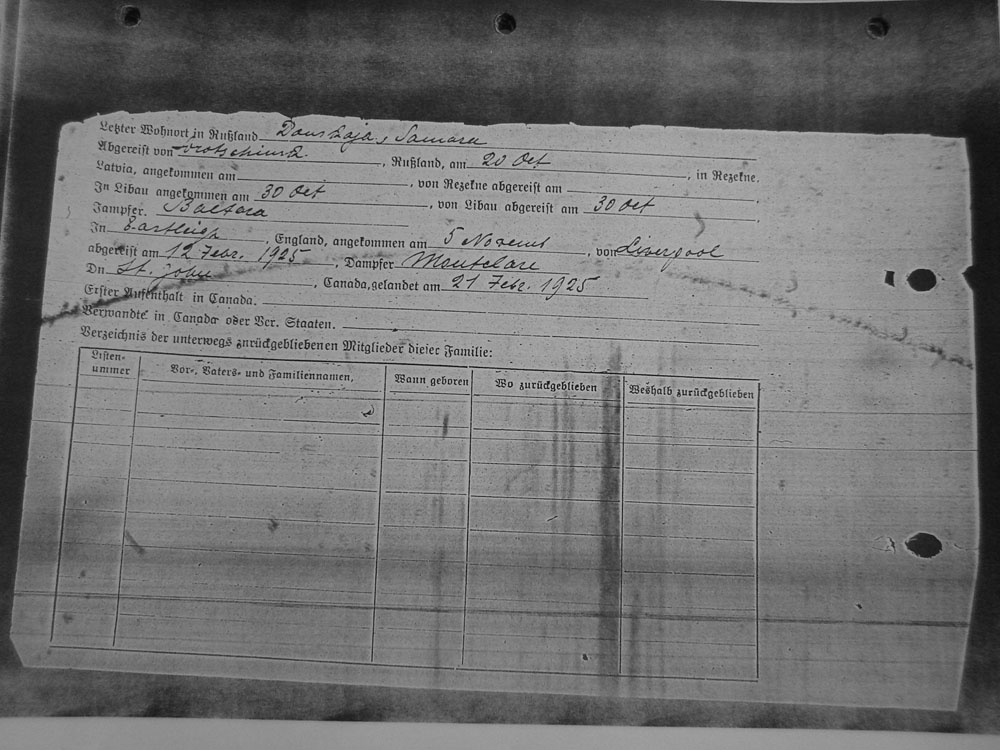 Letzter Wohnort in Rußland Donskaja, Samara
Abgereist von , Rußland, am 20 Oct , in Rezekne.
Latvia, angekommen am , von Rezekne abgereist am
In Libau angekommen am 30 Oct , von Libau abgereist am 30 Oct .
Jampfer. Baltara
In Eastleigh , England, angekommen am 5 Novemb , von Liverpool
abgereist am 12 Febr. 1925 , Dampfer Montclare
Dn St. John , Canada, gelandet am 21 Febr. 1925
Erster Aufenthalt in Canada.
Verwandte in Canada oder Ver. Staaten.
Verzeichnis der unterwegs zurückgebliebenen Mitglieder dieser Familie:
Listen-
ummer
Vor-, Vaters- und Familiennamen,
Wann geboren
Wo zurückgeblieben
Weshalb zurückgeblieben